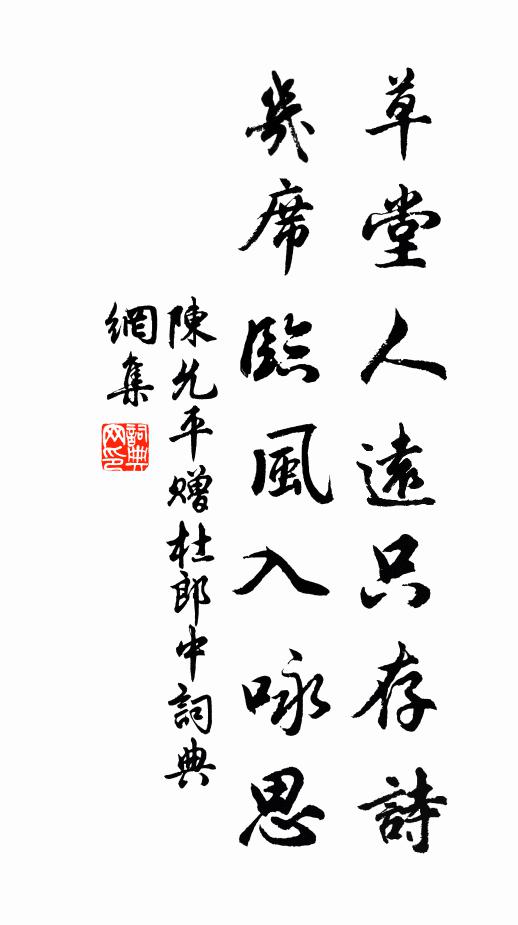 草堂人遠只存詩
幾席臨風入咏思
陳允平贈杜郎中詞典
網集
詞典網印